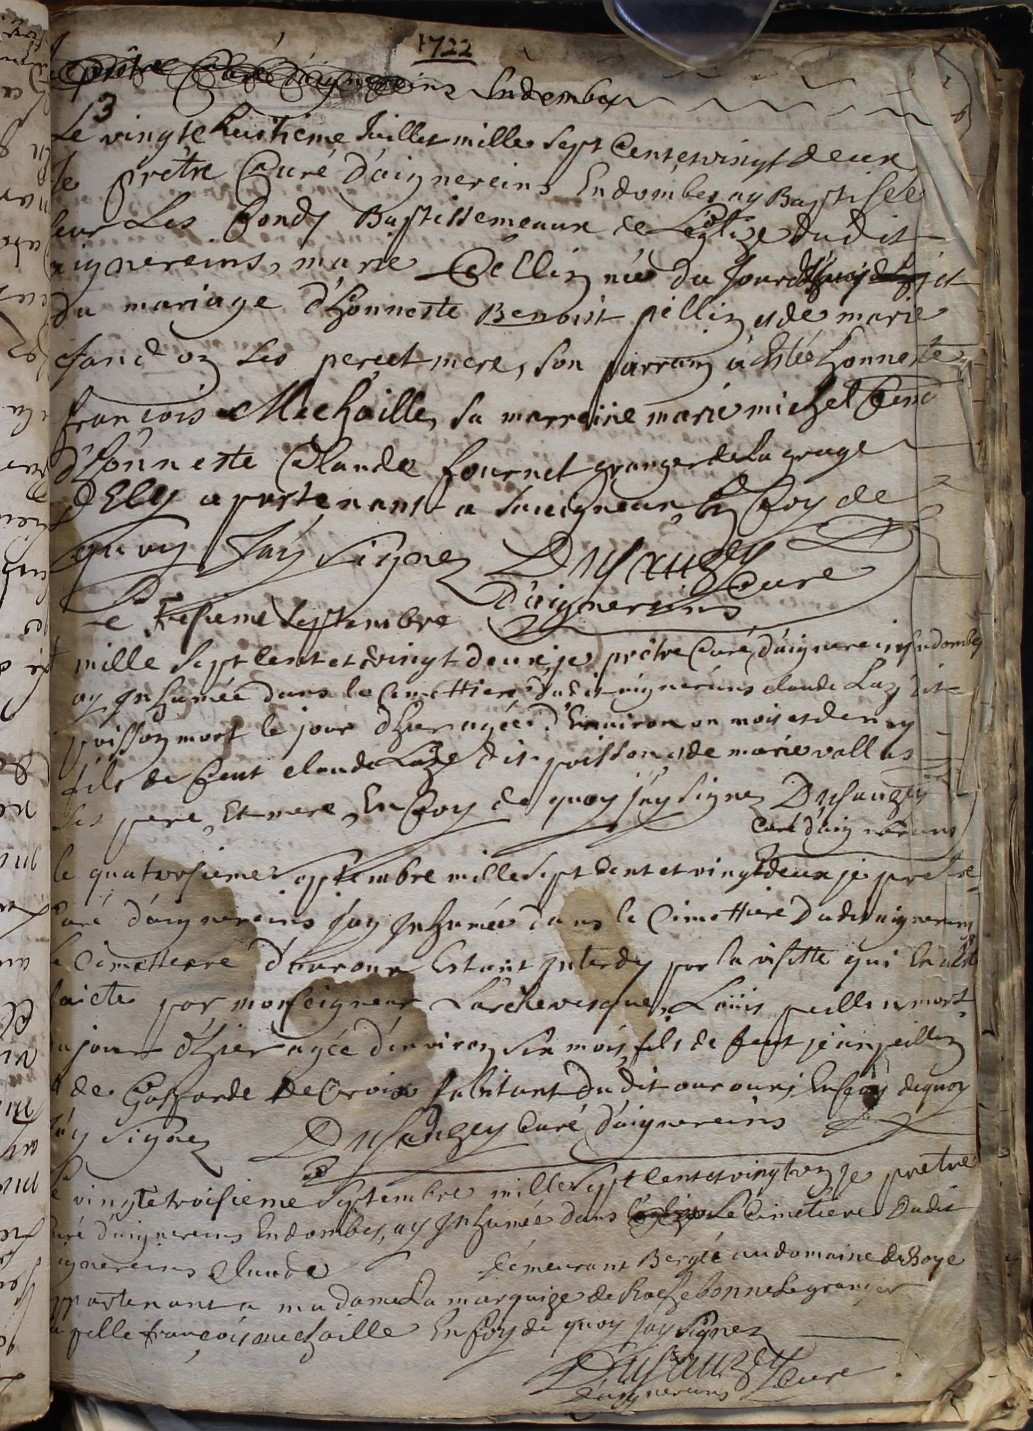 1722
prêtre Curé d'aignereins Endombes
3
Le vingtehuitieme Juillet mille sept Centetvingt deux
Je prêtre Curé D'aignereins Endombes ay Baptisée
sur Les fondz Baptissemeaux de L'eglize dudit
aignereins, marie Pellin née du Jour d'huy et
du mariage d'honneste Benoist pellin et de marie
fandon ses pere et mere, son parrain à Estée honneste
françois Michaille, sa marreine marie michel
d'honneste Claude fournet granger de La grange
d'Ely apartenant a En foy de
quoy J'ay signez Dusauzey Curé
D'aignereins
Le Tresieme Septembre
mille Sept Cent et vingt deux je prêtre Curé d'aignereins Endombes
ay Inhumée dans le Cimettiere dudit aignereins claude Laz dit
poisson mort le jour d'hier agée d'Environ un mois et demy
fils de feut claude Laze dit poisson et de marie vallas
ses pere et mere, En foy de quoy j'ay signez Dusauzey
Curé d'aignereins
le quatorsieme septembre mille sept Cent et vingt deux je pretre
Curé d'aignereins J'ay Inhumée dans le Cimettiere Dudit aignereins
le Cimettiere d'ouroux Estant Interdy par la visitte qui En a esté
faicte par monseigneur L'archevesque, Loüis peillin mort
du jour d'hier agée d'environ six mois fils de feut jean peillon
et de Gasparde Decroix habitant dudit ouroux; En foy de quoy
J'ay Signez Dusauzey Curé d'aignereins
Le vingtetroisieme Septembre mille Sept Cent et vingt deux Je pretre
Curé d'aignereins Endombes, ay Inhumée dans Le Cimetiere Dudit
aignereins Claude demeurant Bergié au domaine de Boye
appartenant a madame La marquize de Rochebonne Le granger
appellé françois michaille En foy de quoy J'ay signez
Dusauzey Curé
D'aignereins